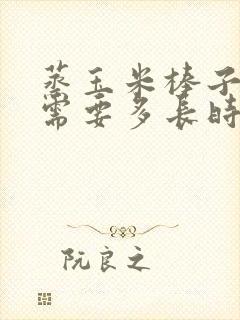 蒸玉米棒子
需要多长时
阮良之